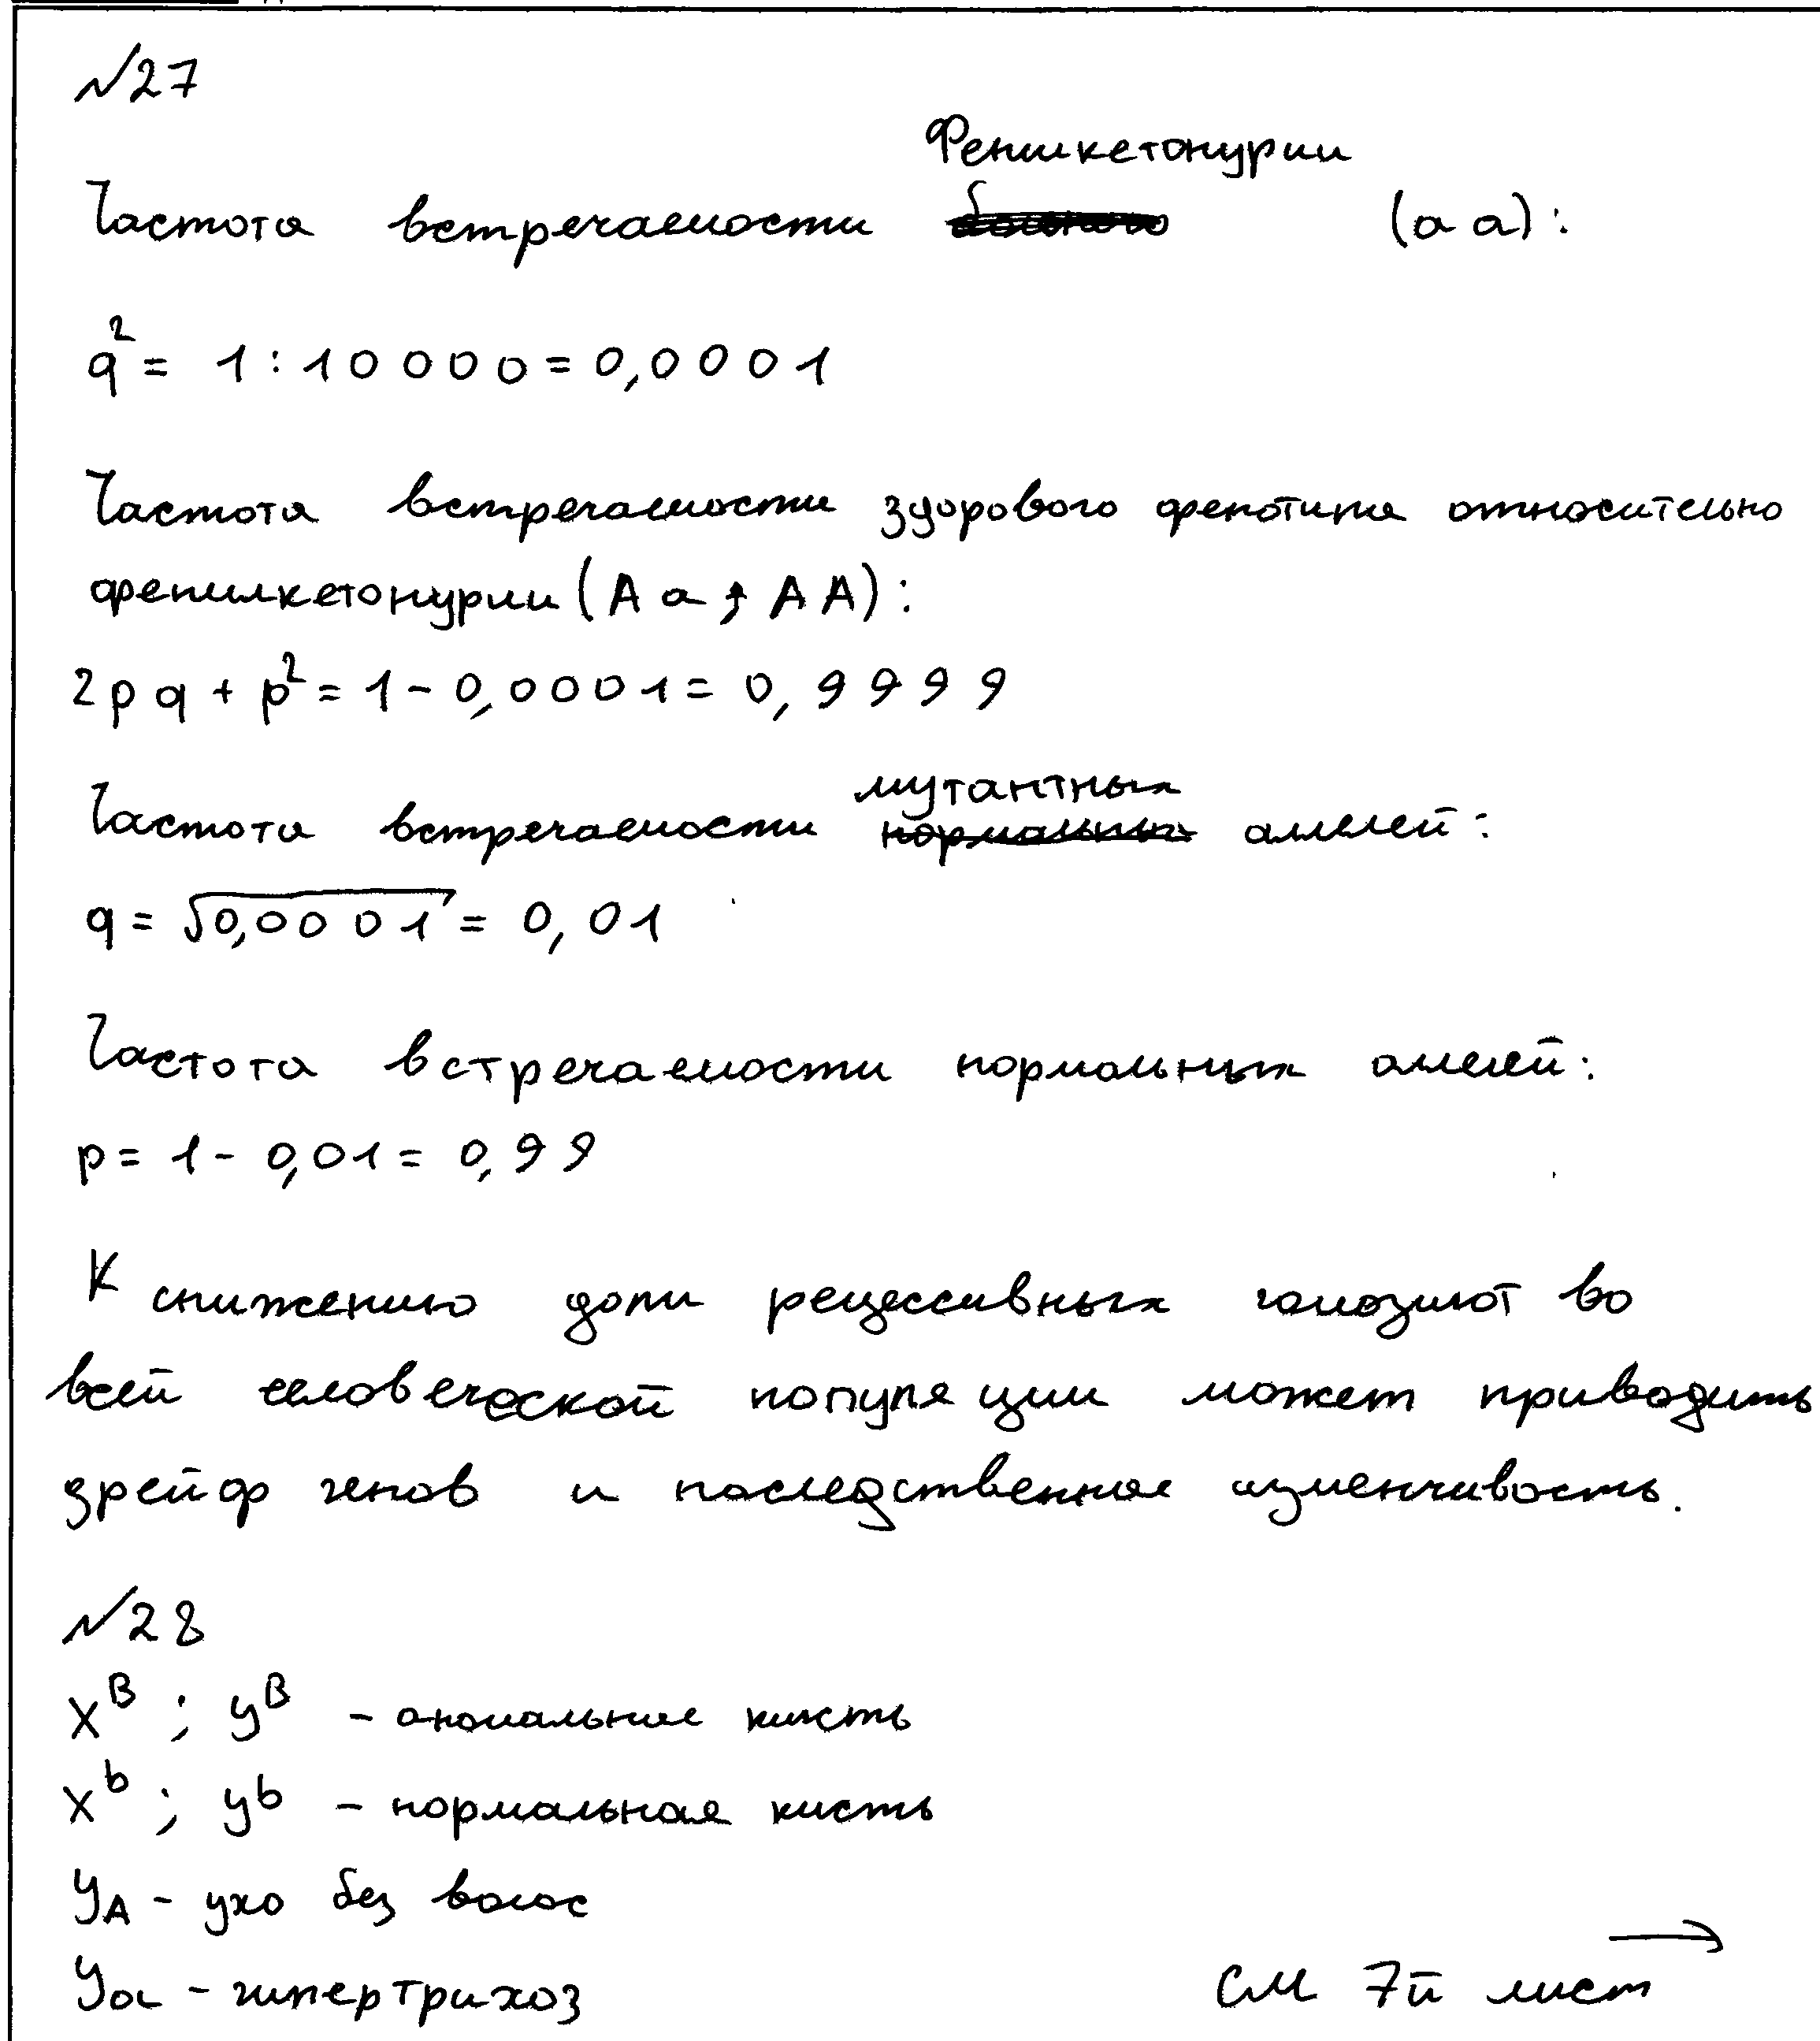 №27
Фенилкетонурии
Частота встречаемости (aa):
q² = 1:10000 = 0,0001
Частота встречаемости здорового фенотипа относительно
фенилкетонурии (Aa; AA):
2pq + p² = 1 - 0,0001 = 0,9999
мутантных
Частота встречаемости нормальных аллелей:
q = √0,0001 = 0,01
Частота встречаемости нормальных аллелей:
p = 1 - 0,01 = 0,99
К снижению доли рецессивных гомозигот во
всей человеческой популяции может приводить
дрейф генов и наследственная изменчивость.
№28
X^B ; y^B - аномальная кисть
X^b ; y^b - нормальная кисть
y_A - ухо без волос
y_a - гипертрихоз
См 7й лист →